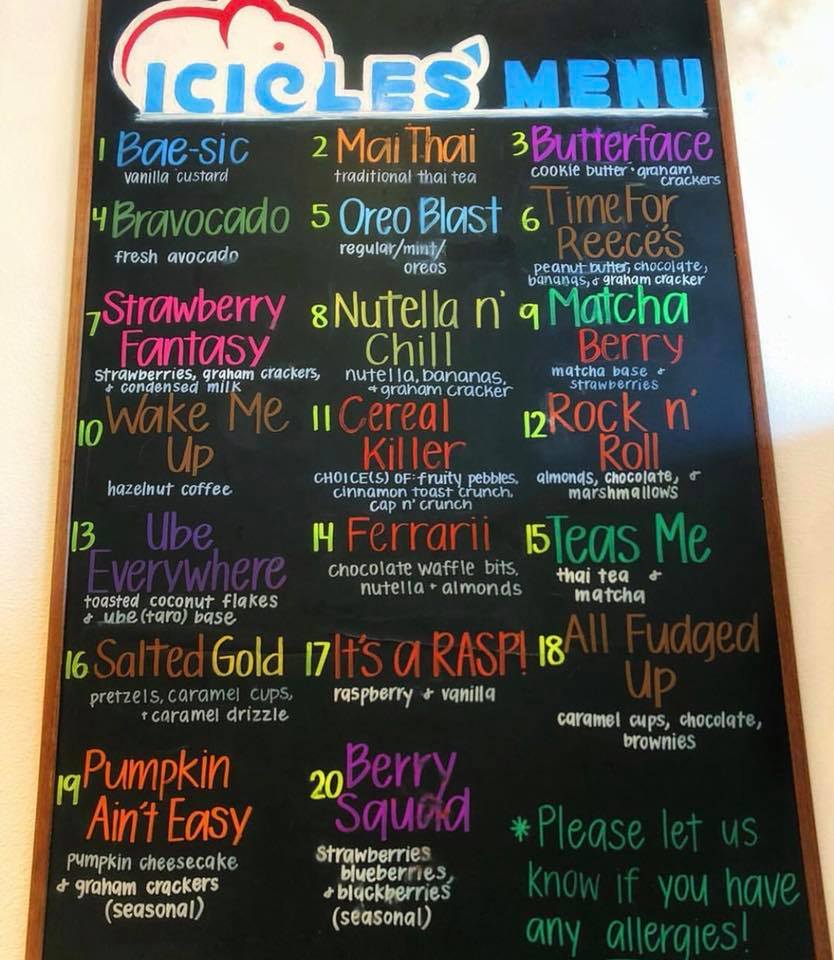 ICICLES' MENU
1 Bae-sic
vanilla custard
2 Mai Thai
traditional thai tea
3 Butterface
cookie butter • graham
crackers
4 Bravocado
fresh avocado
5 Oreo Blast
regular/mint/
oreos
6 Time For
Reece's
peanut butter, chocolate,
bananas, & graham cracker
7 Strawberry
Fantasy
strawberries, graham crackers,
+ condensed milk
8 Nutella n'
Chill
nutella, bananas,
+ graham cracker
9 Matcha
Berry
matcha base +
strawberries
10 Wake Me
Up
hazelnut coffee
11 Cereal
Killer
CHOICE(S) OF: fruity pebbles,
cinnamon toast crunch,
cap n' crunch
12 Rock n'
Roll
almonds, chocolate, &
marshmallows
13 Ube
Everywhere
toasted coconut flakes
& ube (taro) base
14 Ferrarii
chocolate waffle bits,
nutella + almonds
15 Teas Me
thai tea &
matcha
16 Salted Gold
pretzels, caramel cups,
+ caramel drizzle
17 It's a RASP!
raspberry & vanilla
18 All Fudged
Up
caramel cups, chocolate,
brownies
19 Pumpkin
Ain't Easy
pumpkin cheesecake
& graham crackers
(seasonal)
20 Berry
Squad
strawberries
blueberries,
& blackberries
(seasonal)
* Please let us
know if you have
any allergies!